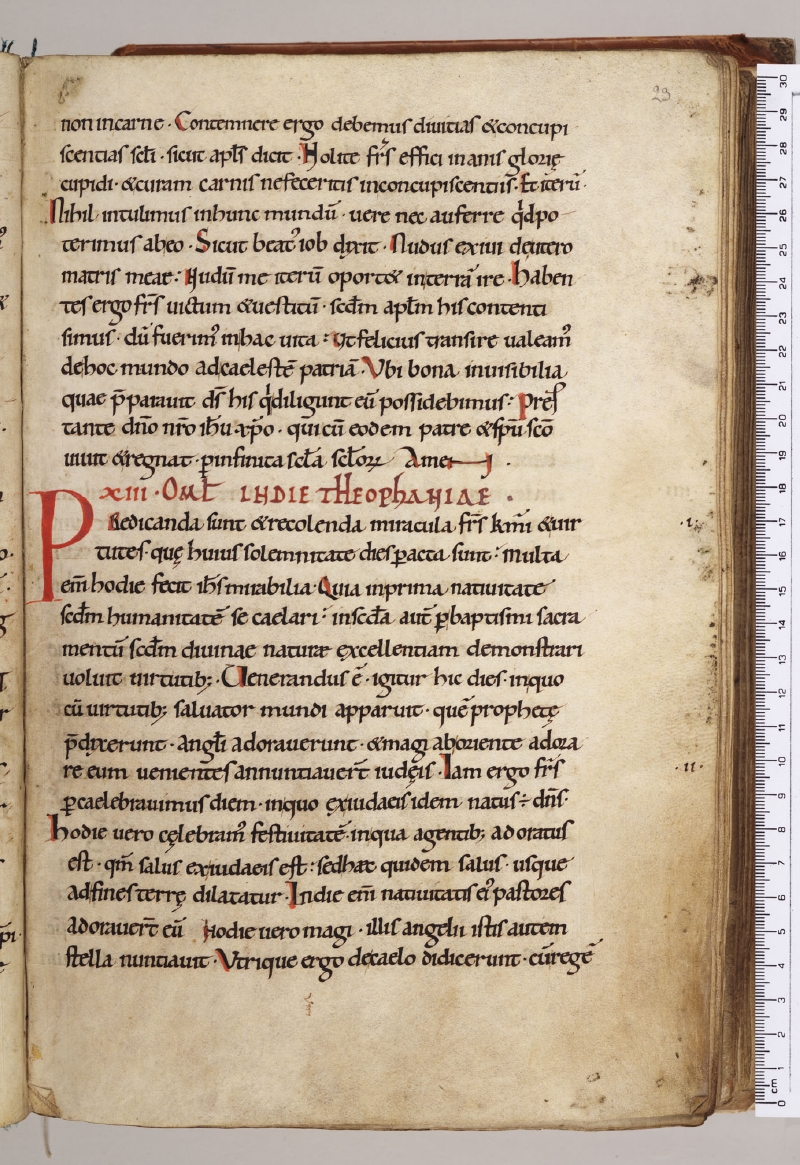 23
non incarne · Contemnere ergo debemus diuitias &concupi
scentias sc̄li · sicut apl̄s dicit · Nolite fr̄s effici inanis glorię
cupidi · &curam carnis nefeceritis inconcupiscentiis · Et iterū ·
Nihil intulimus inhunc mundū · uere nec auferre qd̄ po
terimus abeo · Sicut beat᾽ iob dixit · Nudus exiui deutero
matris meae : Nudū me iterū oport& interrā ire · haben
tes ergo fr̄s uictum &uestitū · scd̄m apl̄m his contenti
simus · dū fuerim᾽ inhac uita : Vt felicius transire ualeam᾽
dehoc mundo adcaelestē patriā · Vbi bona inuisibilia
quae p̄parauit ds̄ his qd̄iligunt eū possidebimus : Pręs
tante dn̄o nr̄o ih̄u xp̄o · qui cū eodem patre &sp̄u sc̄o
uiuit &regnat · ꝑ infinita sc̄la sc̄loꝝ Amen ·
xiii · OML̄ INDIE THEOPHANIAE ·
PRedicanda sunt &recolenda miracula fr̄s km̄i &uir
tutes · quę huius solemnitate dies ꝑacta sunt : multa
· i ·
em̄ hodie fecit ih̄s mirabilia · Quia inprima natiuitate
scd̄m humanitatē se caelari : insc̄da aut̄ ꝑ baptismi sacra
mentū scd̄m diuinae naturæ excellentiam demonstrari
uoluit uirtutib; · Uenerandus ē · igitur hic dies · inquo
cū uirtutib; saluator mundi apparuit · quē prophetę
p̄dixerunt · angl̄i adorauerunt · &magi aboriente adora
re eum uenientes annuntiauer̄t iudęis · Iam ergo fr̄s
· ii ·
ꝑcaelebrauimus diem · inquo exiudaeis idem natus ÷ dn̄s ·
hodie uero cęlebram᾽ festiuitatē · inqua agentib; adoratus
est · qm̄ salus exiudaeis est : sedhaec quidem salus · usque
adfines terrę dilatatur · Indie em̄ natiuitatis ei᾽ pastores
adorauer̄t eū hodie uero magi · illis angeli istis autem
stella nuntiauit · Vtrique ergo decaelo didicerunt · cū regē